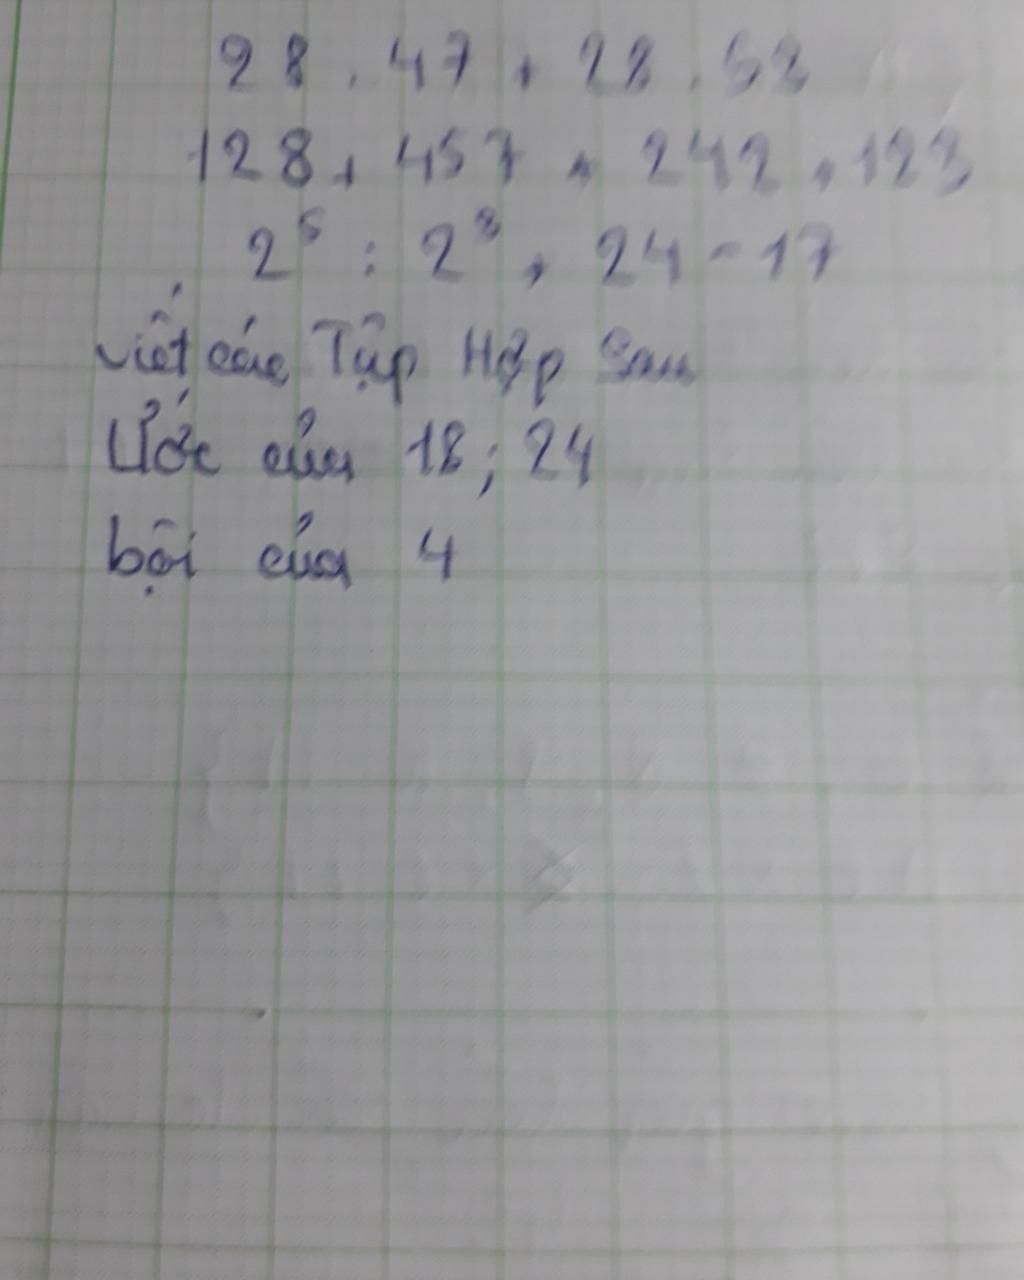 28 . 47 + 28 . 53
128 + 457 + 242 + 123
2⁵ : 2³ + 24 - 17
viết các Tập Hợp Sau
Ước của 18 ; 24
bội của 4